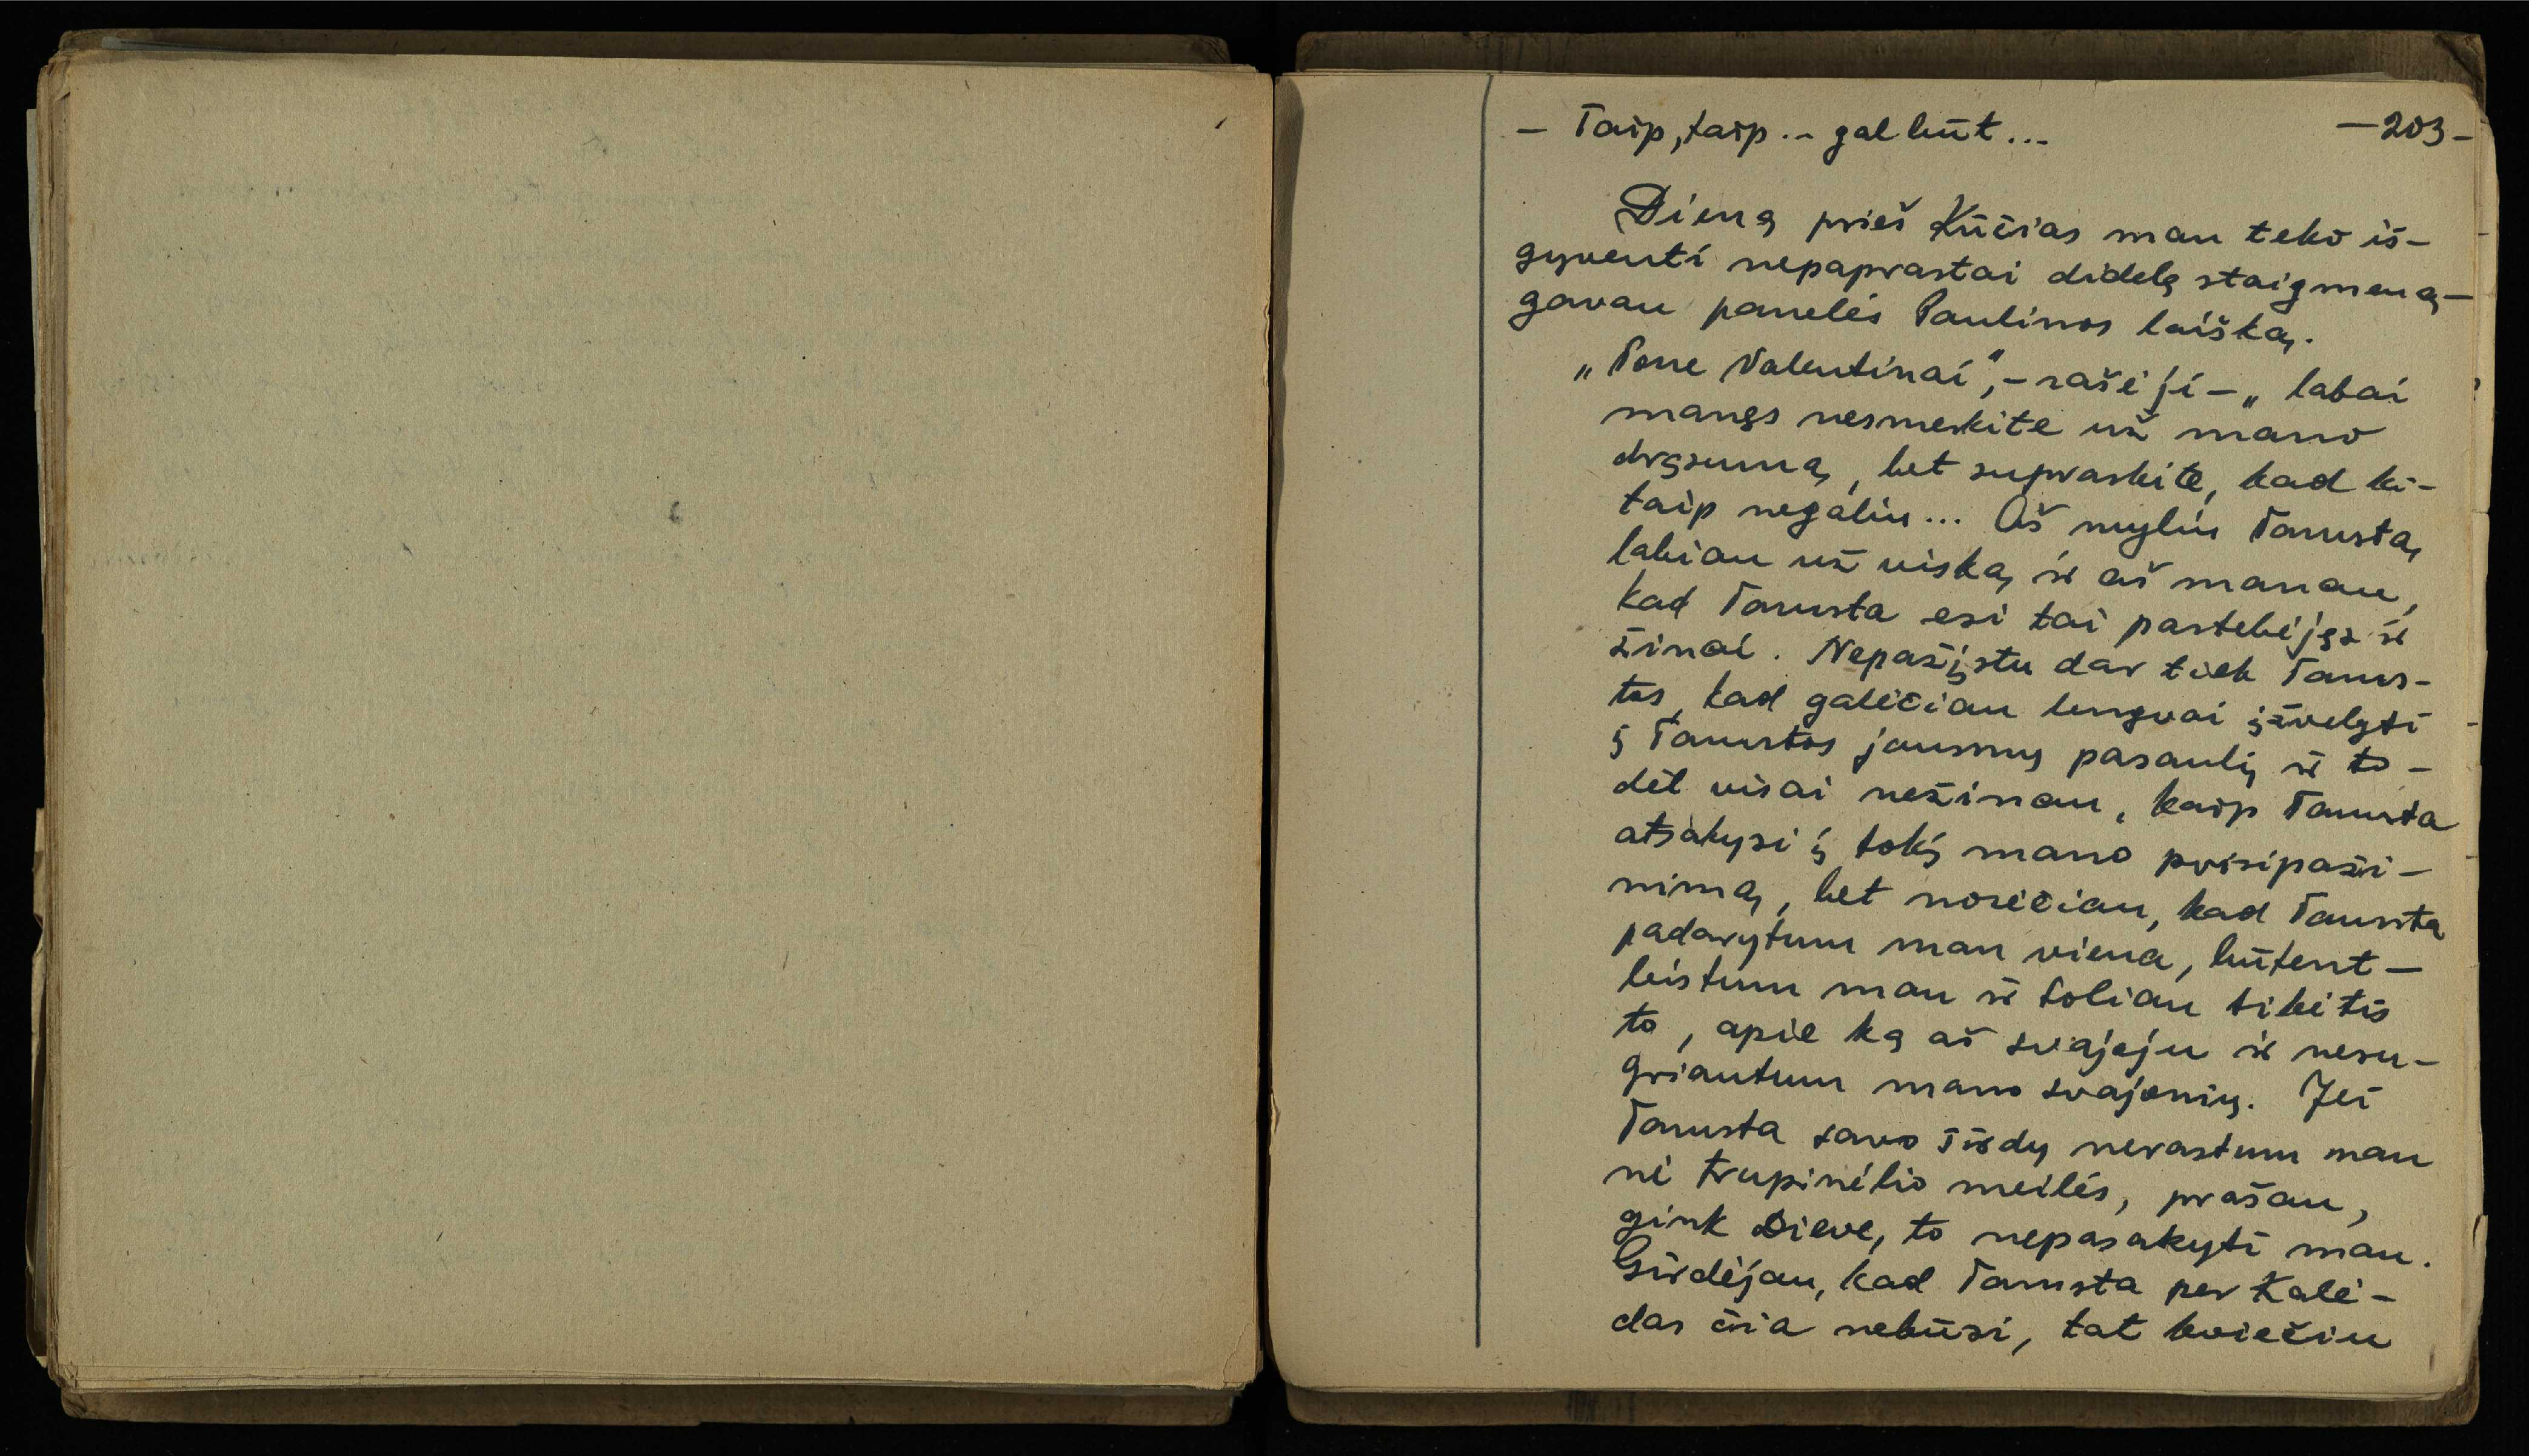 – Taip, taip... gal būt...
—203—
Dieną prieš Kūčias man teko iš-
gyventi nepaprastai didelę staigmeną—
gavau panelės Paulinos laišką.
„Pone Valentinai“, – rašė ji – „labai
manęs nesmerkite už mano
drąsumą, bet supraskite, kad ki-
taip negaliu... Aš myliu Tamstą
labiau už viską ir aš manau,
kad Tamsta esi tai pastebėjęs ir
žinai. Nepažįstu dar tiek Tams-
tos, kad galėčiau lengvai įžvelgti
į Tamstos jausmų pasaulį ir to-
dėl visai nežinau, kaip Tamsta
atsakysi į tokį mano prisipaži-
nimą, bet norėčiau, kad Tamsta
padarytum man viena, būtent—
leistum man ir toliau tikėtis
to, apie ką aš svajoju ir nesu-
griautum mano svajonių. Jei
Tamsta savo širdy nerastum man
nė trupinėlio meilės, prašau,
gink Dieve, to nepasakyti man.
Girdėjau, kad Tamsta per Kalė-
das čia nebūsi, tat kviečiu